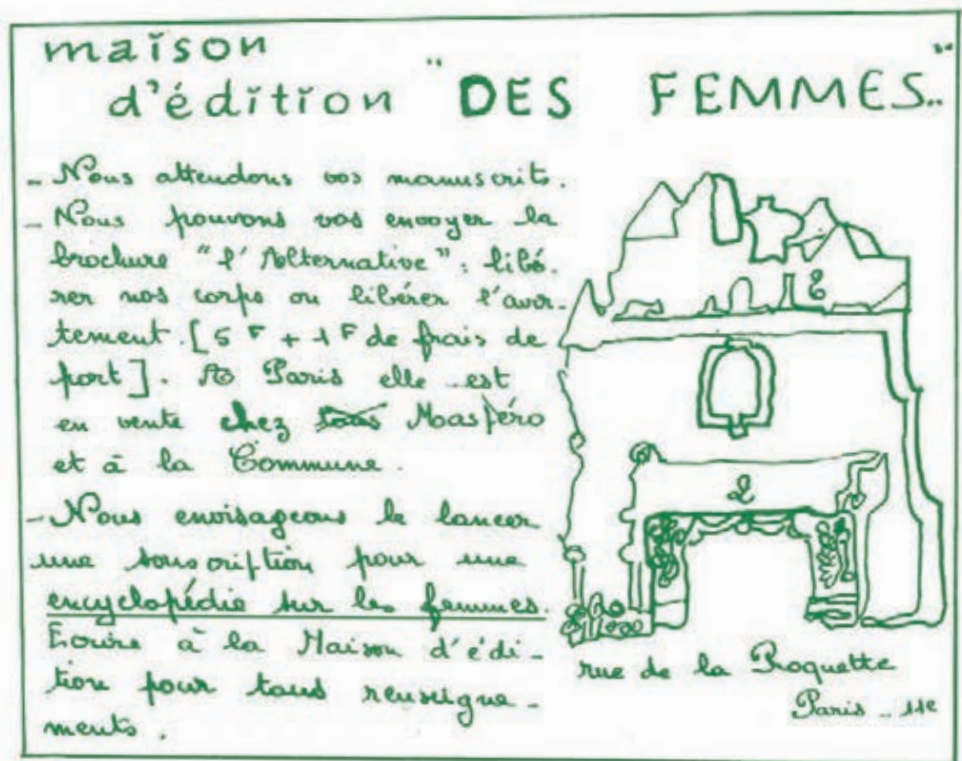 maison
d'édition "DES FEMMES.."
- Nous attendons vos manuscrits.
- Nous pouvons vos envoyer la
brochure "l'Alternative": libé-
rer nos corps ou libérer l'avor-
tement. [5 F + 1 F de frais de
port]. A Paris elle est
en vente chez tous Maspéro
et à la Commune.
- Nous envisageons le lancer
une souscription pour une
encyclopédie sur les femmes.
Ecrire à la Maison d'édi-
tion pour tous renseigne-
ments.
rue de la Roquette
Paris - 11e